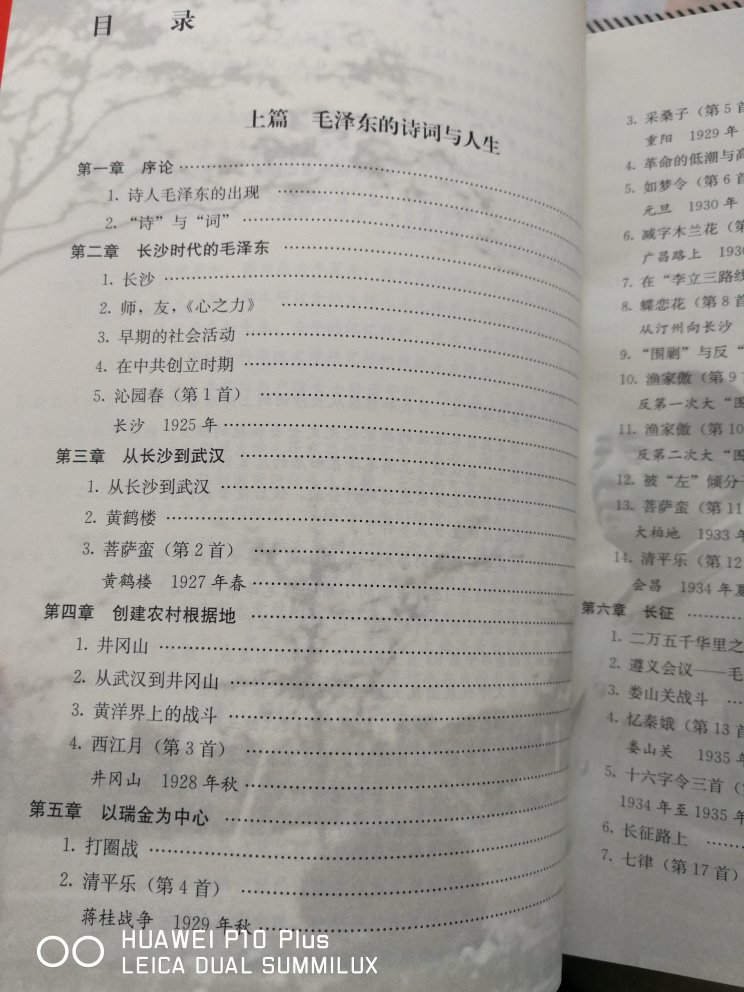 目 录
上篇 毛泽东的诗词与人生
第一章 序论
1. 诗人毛泽东的出现
2. “诗”与“词”
第二章 长沙时代的毛泽东
1. 长沙
2. 师，友，《心之力》
3. 早期的社会活动
4. 在中共创立时期
5. 沁园春（第 1 首）
长沙 1925 年
第三章 从长沙到武汉
1. 从长沙到武汉
2. 黄鹤楼
3. 菩萨蛮（第 2 首）
黄鹤楼 1927 年春
第四章 创建农村根据地
1. 井冈山
2. 从武汉到井冈山
3. 黄洋界上的战斗
4. 西江月（第 3 首）
井冈山 1928 年秋
第五章 以瑞金为中心
1. 打圈战
2. 清平乐（第 4 首）
蒋桂战争 1929 年秋
3. 采桑子（第 5 首
重阳 1929 年
4. 革命的低潮与高
5. 如梦令（第 6 首
元旦 1930 年
6. 减字木兰花（第
广昌路上 1930
7. 在“李立三路线
8. 蝶恋花（第 8 首
从汀州向长沙
9. “围剿”与反“
10. 渔家傲（第 9
反第一次大“围
11. 渔家傲（第 10
反第二次大“围
12. 被“左”倾分子
13. 菩萨蛮（第 11
大柏地 1933 年
14. 清平乐（第 12
会昌 1934 年夏
第六章 长征
1. 二万五千华里之
2. 遵义会议——毛
3. 娄山关战斗
4. 忆秦娥（第 13 首
娄山关 1935 年
5. 十六字令三首（
1934 年至 1935 年
6. 长征路上
7. 七律（第 17 首）
HUAWEI P10 Plus
LEICA DUAL SUMMILUX